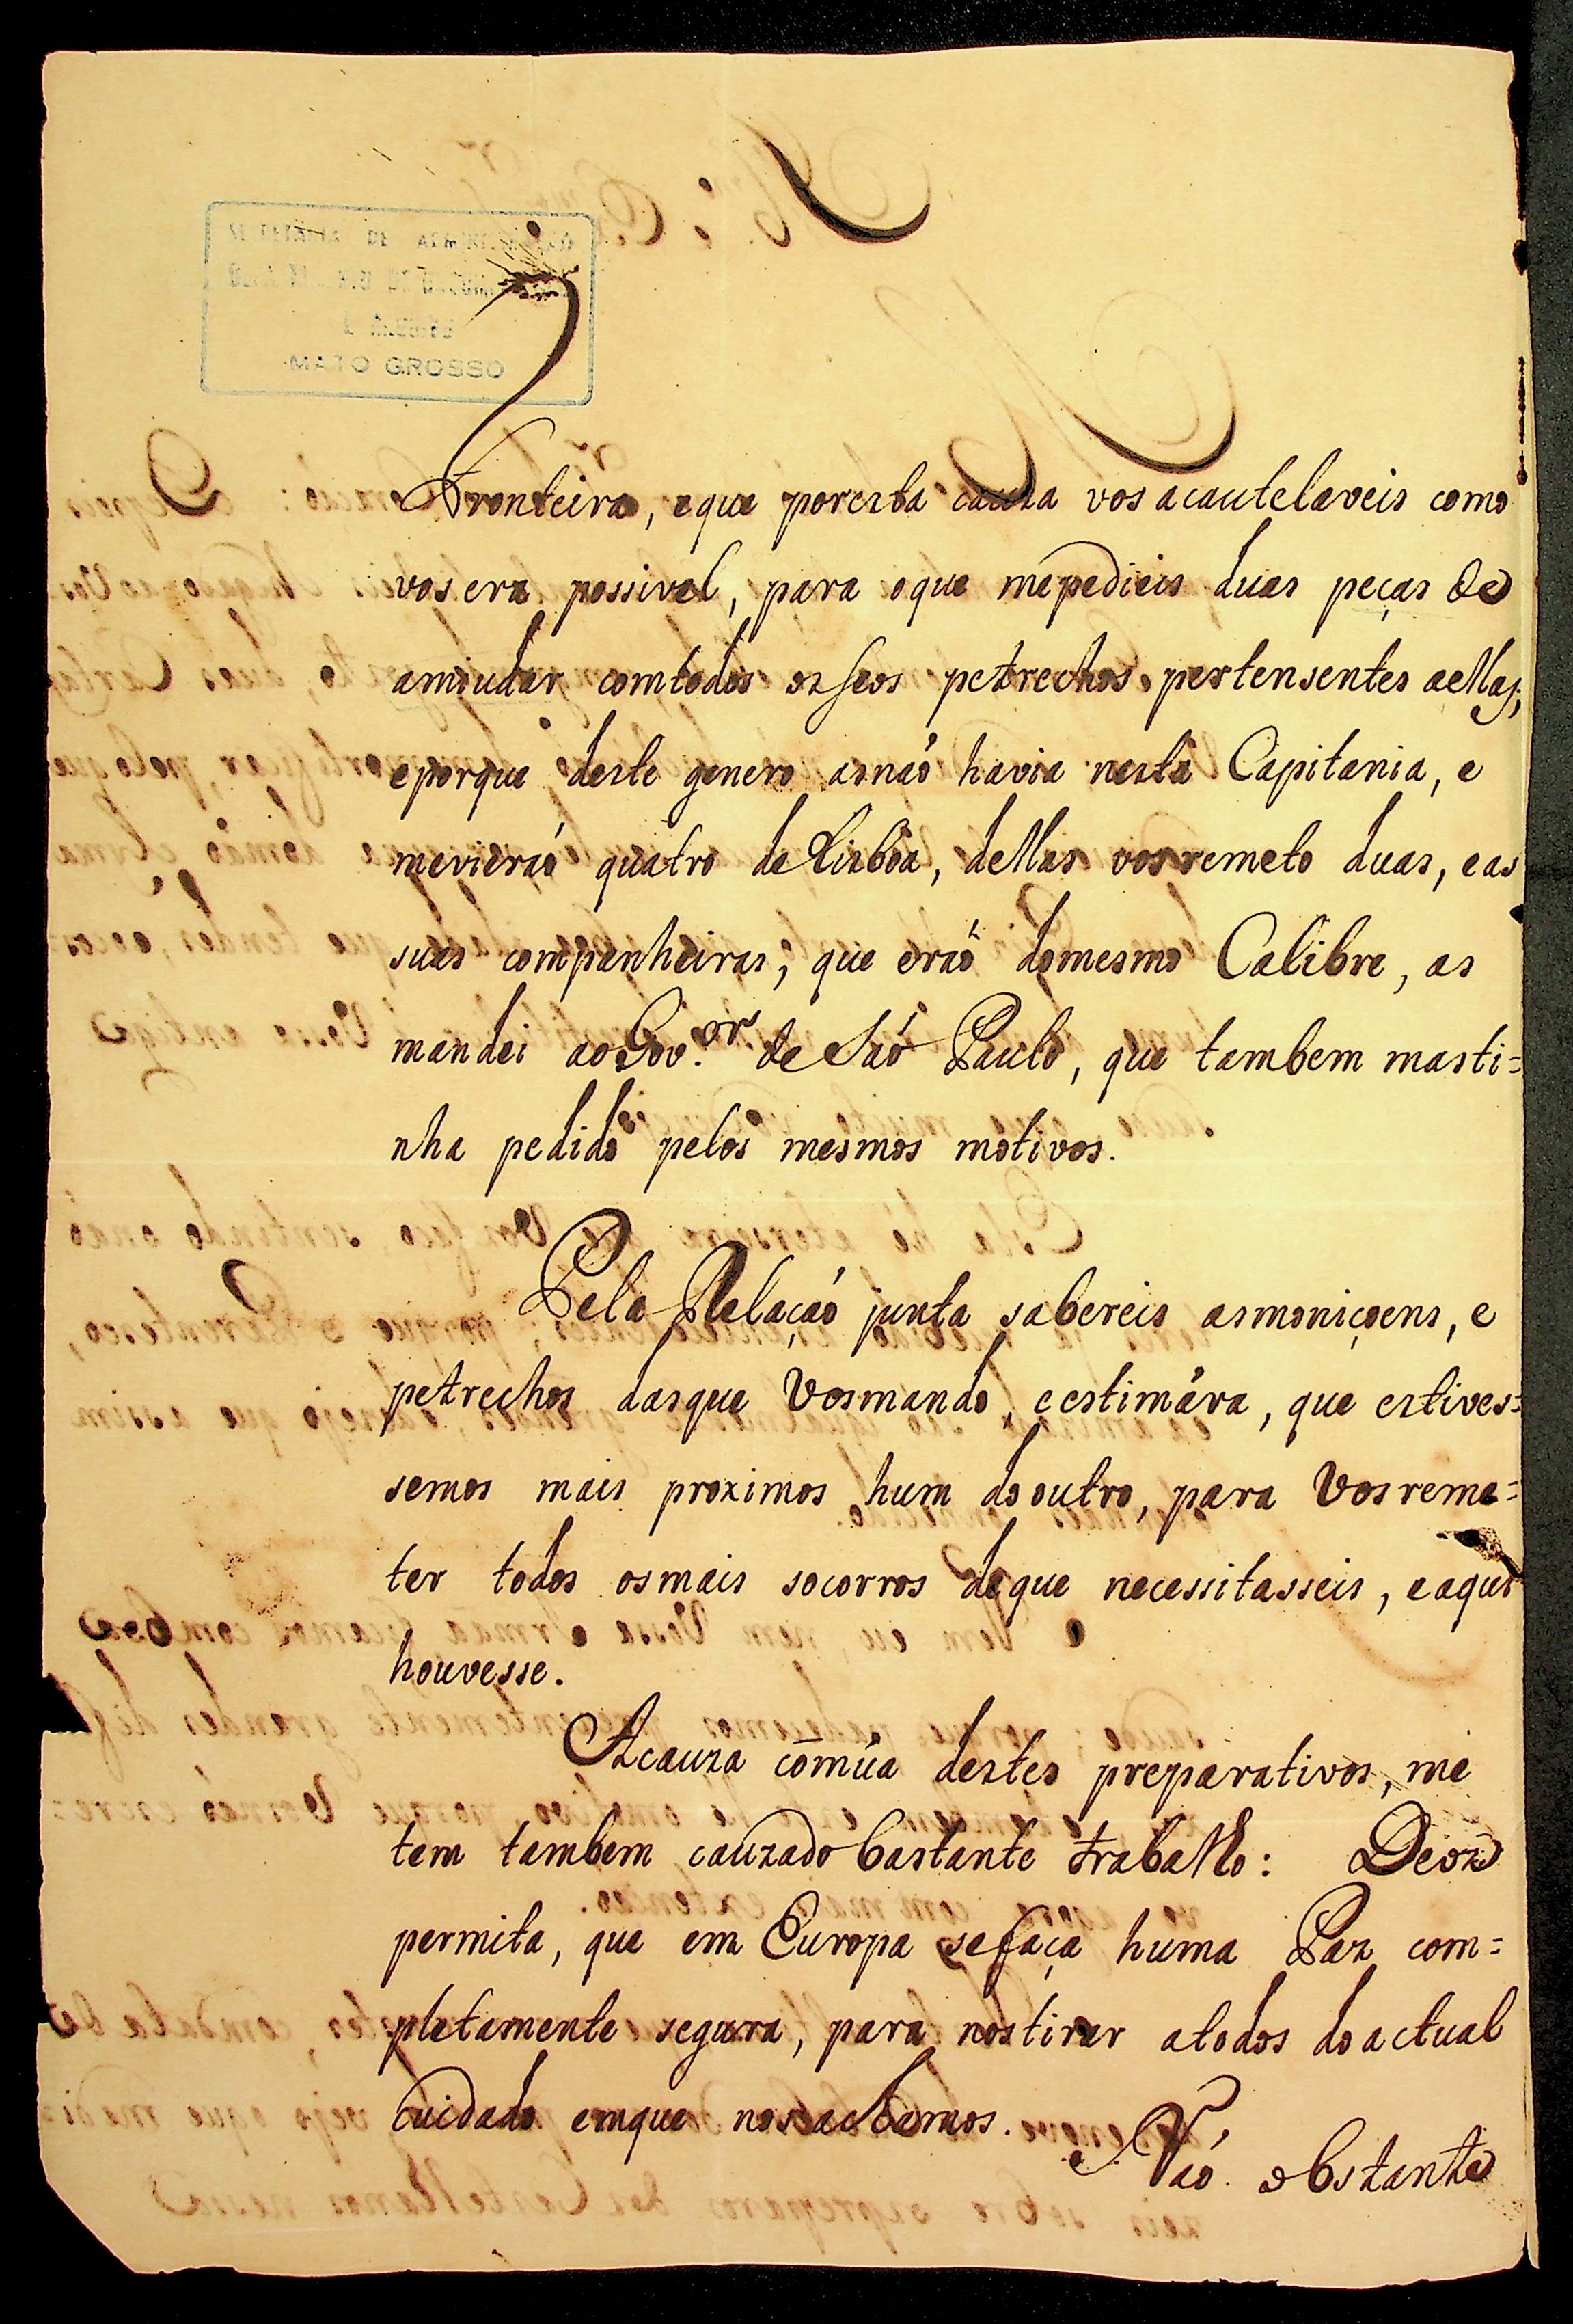 DE
MATO GROSSO
Fronteira, eque poresta cauza vos acautelaveis como
vos era possivel, para oque mepedieis duas peças de
amiudar comtodos os seos petrechos pertensentes aellas;
eporque deste genero asnaó havia nesta Capitania, e
mevieraó quatro de Lisbôa, dellas vos remeto duas, e as
suas companheiras; que eraó domesmo Calibre, as
mandei ao Gov.or de Saó Paulo, que tambem masti=
nha pedido pelos mesmos motivos.
Pela Relaçaó junta sabereis asmoniçoens, e
petrechos dasque Vosmando, e estimára, que estives=
semos mais proximos hum do outro, para Vos reme=
ter todos osmais socorros deque necessitasseis, e aqui
houvesse.
Acauza cōmúa destes preparativos, me
tem tambem cauzado bastante trabalho: Deos
permita, que em Europa sefaça huma Paz com=
pletamente segura, para nostirar atodos do actual
cuidado emque nos achamos.
Naó obstante